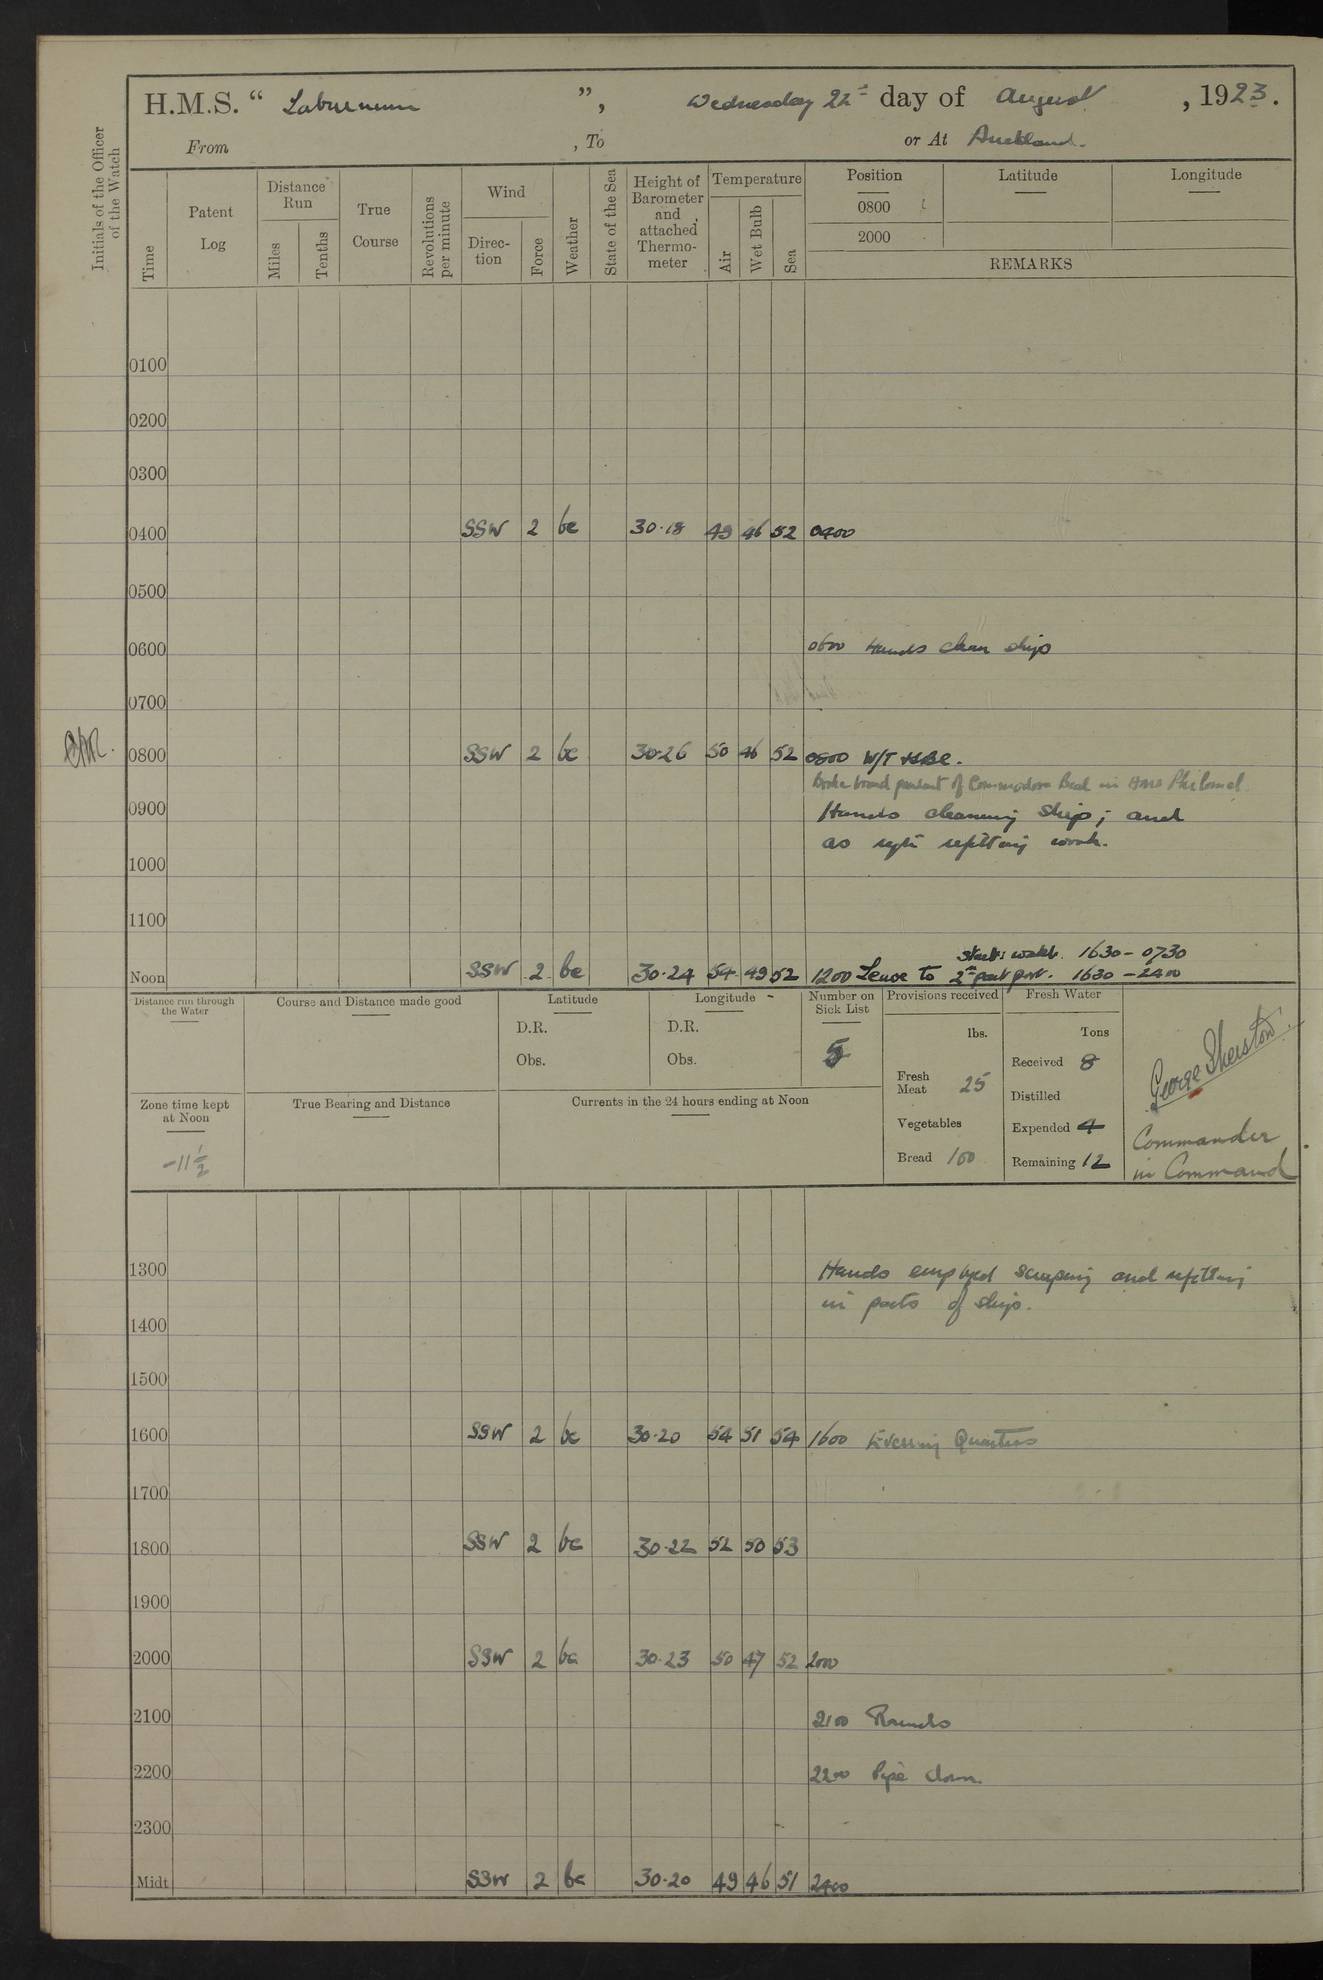 H.M.S. “ Laburnum ”, Wednesday 22nd day of August , 1923.
From , To or At Auckland.
Initials of the Officer of the Watch
Time
Patent Log
Distance Run
Miles Tenths
True Course
Revolutions per minute
Wind
Direc-tion Force
Weather
State of the Sea
Height of Barometer and attached Thermo-meter
Temperature
Air Wet Bulb Sea
Position Latitude Longitude
0800
2000
REMARKS
0100
0200
0300
0400 SSW 2 bc 30.18 49 46 52 0400
0500
0600 0600 Hands clean ship
0700
0800 SSW 2 bc 30.26 50 46 52 0800 W/T
Broke broad pendant of Commodore Beal in HMS Philomel
0900 Hands cleaning ship; and
as refitting work.
1000
1100
Starbd watch 1630 - 0730
Noon SSW 2 bc 30.24 54 49 52 1200 Leave to 2nd part port. 1630 - 2400
Distance run through the Water
Course and Distance made good
Latitude
D.R.
Obs.
Longitude
D.R.
Obs.
Number on Sick List
5
Provisions received
lbs.
Fresh Meat 25
Vegetables
Bread 100
Fresh Water
Tons
Received 8
Distilled
Expended 4
Remaining 12
George Sherston
Commander
in Command
Zone time kept at Noon
-11 1/2
True Bearing and Distance
Currents in the 24 hours ending at Noon
1300 Hands employed scraping and refitting
in parts of ship.
1400
1500
1600 SSW 2 bc 30.20 54 51 54 1600 Evening Quarters
1700
1800 SSW 2 bc 30.22 52 50 53
1900
2000 SSW 2 bc 30.23 50 47 52 2000
2100 2100 Rounds
2200 2200 Pipe down.
2300
Midt SSW 2 bc 30.20 49 46 51 2400